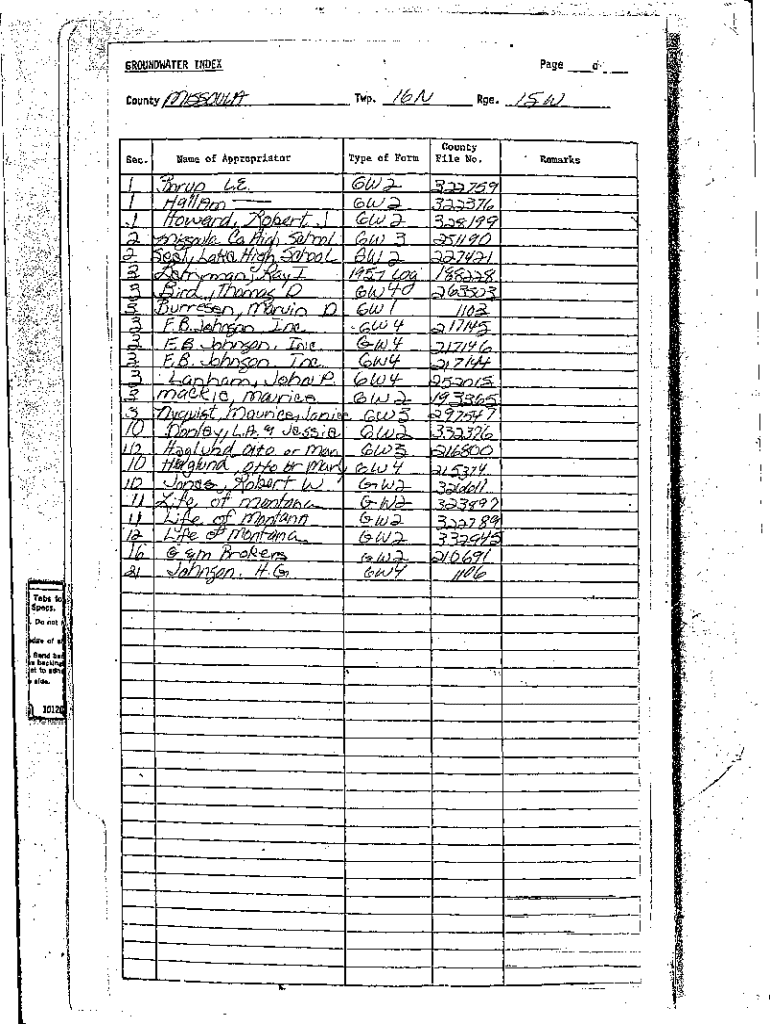 GROUNDWATER INDEX Page of
County MISSOULA Twp. 16N Rge. 15W
Sec. Name of Appropriator Type of Form County File No. Remarks
1 L.E. GW2 322759
1 Hallam GW2 322376
1 Howard, Robert J GW2 328199
2 Missoula Co High School GW3 251190
2 Seely Lake High School GW2 227421
3 Ray I 1957 Log 188228
3 Bird, Thomas O GW40 263503
3 Burresen, Marvin D GW1 1103
3 F.B. Johnson Inc. GW4 217145
3 F.B. Johnson, Inc. GW4 217146
3 F.B. Johnson, Inc GW4 217144
3 Lanham, John P. GW4 252015
3 Mackie, Maurice GW2 193365
3 Nyquist, Maurice, Janice GW3 297547
10 Donley, L.A. & Jessie GW2 332376
10 Haglund Otto or Mary GW3 216800
10 Haglund, Otto or Mary GW4 215374
10 Jones, Robert W GW2
11 Life of Montana GW2 323897
11 Life of Montann GW2 322789
12 Life of Montana GW2 332945
16 G & M Brokers GW2 210691
21 Johnson, H.G. GW4 1106
Tabs to
Specs.
Do not
edge of
Send
backing
side.
10120